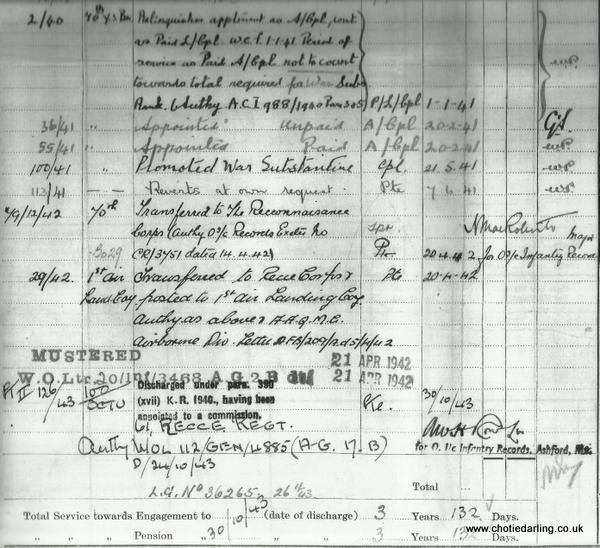 2/40 70th Relinquishes appointment as A/Cpl, cont.
as Paid L/Cpl. w.e.f. 1-1-41 Period of
service as Paid A/Cpl not to count
towards total required for War Subs
Rank. (Authy A.C.I 988/1940 Para 305) P/L/Cpl 1-1-41
36/41 " Appointed Unpaid A/Cpl 20-2-41
55/41 " Appointed Paid A/Cpl 20-2-41
100/41 " Promoted War Substantive Cpl. 21.5.41
113/41 - - Reverts at own request. Pte 7.6.41
49/12/42 70th Transferred to The Reconnaisance
Corps (Authy O i/c Records Exeter No
3029 CR/3751 dated 14.4.42) Pte 20.4.42 for O i/c Infantry Records
Major
29/42. 1st Air Transferred to Recce Corps & Pte 20-4-42
Land Coy posted to 1st Air Landing Coy
Authy as above & A.Q.M.G.
Airborne Div. Letter
MUSTERED 21 APR 1942
W.O. Ltr. 20/Inf/3468 A G 2 B dtd 21 APR 1942
Pt II 126/43 100 OCTU Discharged under para. 390
(xvii) K.R. 1940, having been
appointed to a commission. Pte. 30/10/43
61 RECCE REGT.
Authy WOL 112/GEN/4885 (A.G. 17. B) for O. i/c Infantry Records, Ashford, Mx.
D/24/10/43
L.G. No 36265
Total ...
Total Service towards Engagement to 30/10/43 (date of discharge) 3 Years 132 Days.
" " Pension 3 Years 132 Days.
www.chotiedarling.co.uk